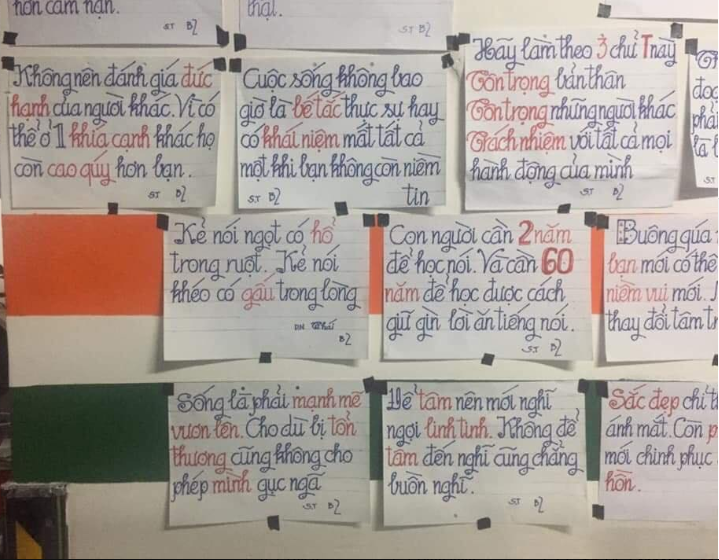 hơn cam hạn.
ST BZ
thại.
ST BZ
Không nên đánh giá đức
hạnh của người khác. Vì có
thể ở 1 khía cạnh khác họ
còn cao quý hơn bạn.
ST BZ
Cuộc sống không bao
giờ là bế tắc thực sự hay
có khái niệm mất tất cả
một khi bạn không còn niềm
tin
ST BZ
Hãy làm theo 3 chữ T này
Tôn trọng bản thân
Tôn trọng những người khác
Trách nhiệm với tất cả mọi
hành động của mình
ST BZ
Kẻ nói ngọt có hổ
trong ruột. Kẻ nói
khéo có gấu trong lòng
BZ
Con người cần 2 năm
để học nói. Và cần 60
năm để học được cách
giữ gìn lời ăn tiếng nói.
ST BZ
Buông qúa
bạn mới có thể
niềm vui mới.
thay đổi tâm
Sống là phải mạnh mẽ
vươn lên. Cho dù bị tổn
thương cũng không cho
phép mình gục ngã
ST BZ
Để tâm nên mới nghĩ
ngợi linh tinh. Không để
tâm đến nghĩ cũng chẳng
buồn nghĩ.
ST BZ
Sắc đẹp chỉ
ánh mắt. Còn
mới chinh phục
hồn.